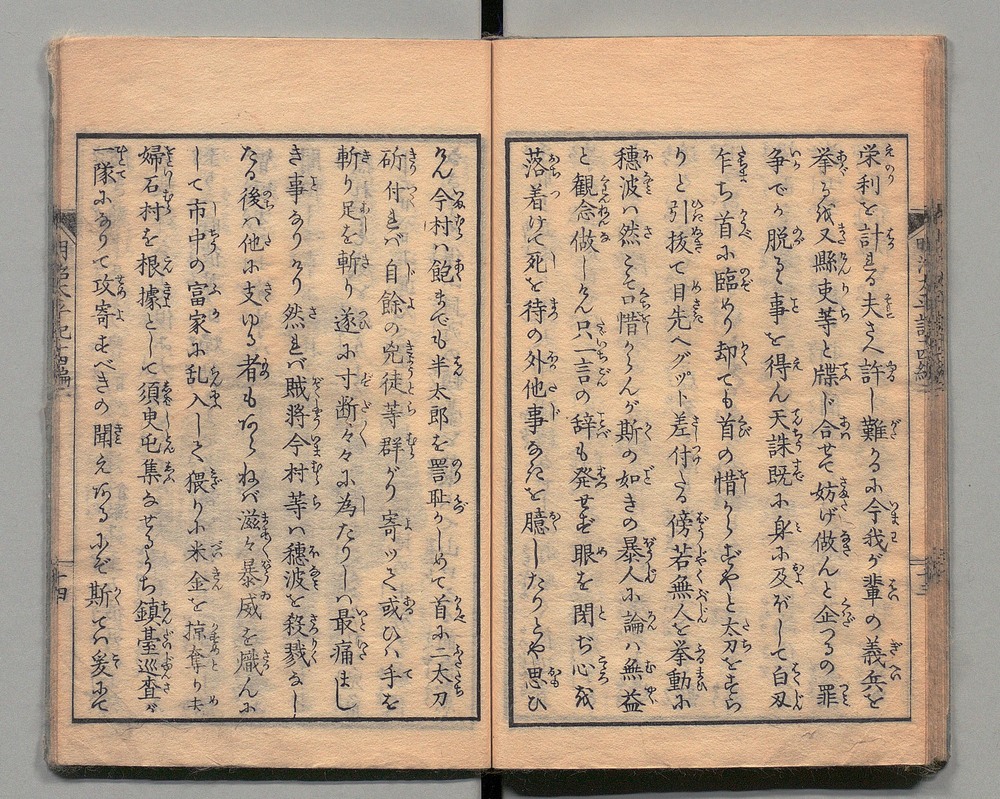 栄利を計れる夫さへ許し難かるに今我が輩の義兵を
挙るを又縣吏等と牒じ合せて妨げ做んと企つるの罪
争でか脱るゝ事を得ん天誅既に身に及ぼして白刄
乍ち首に臨めり却ても首の惜からずやと太刀をすら
りと引抜て目先へグット差付たる傍若無人を挙動に
穗波ハ然こそ口惜からんが斯の如きの暴人に論ハ無益
と観念做しけん只一言の辞も発せず眼を閉ぢ心を
落着けて死を待の外他事なきを臆したりとや思ひ
けん今村ハ飽までも半太郎を詈恥かしめて首に二太刀
斫付れバ自餘の兇徒等群がり寄ッて或ひハ手を
斬り足を斬り遂に寸断々々に為たりしハ最痛まし
き事なりけり然れバ賊將今村等ハ穗波を殺戮なし
たる後ハ他に支ゆる者もあらねバ滋々暴威を熾んに
して市中の富家に乱入して猥りに米金を掠奪り夫
婦石村を根據として須臾屯集なせるうち鎮臺巡査が
一隊になりて攻寄すべきの聞えあるにぞ斯てハ爰にて